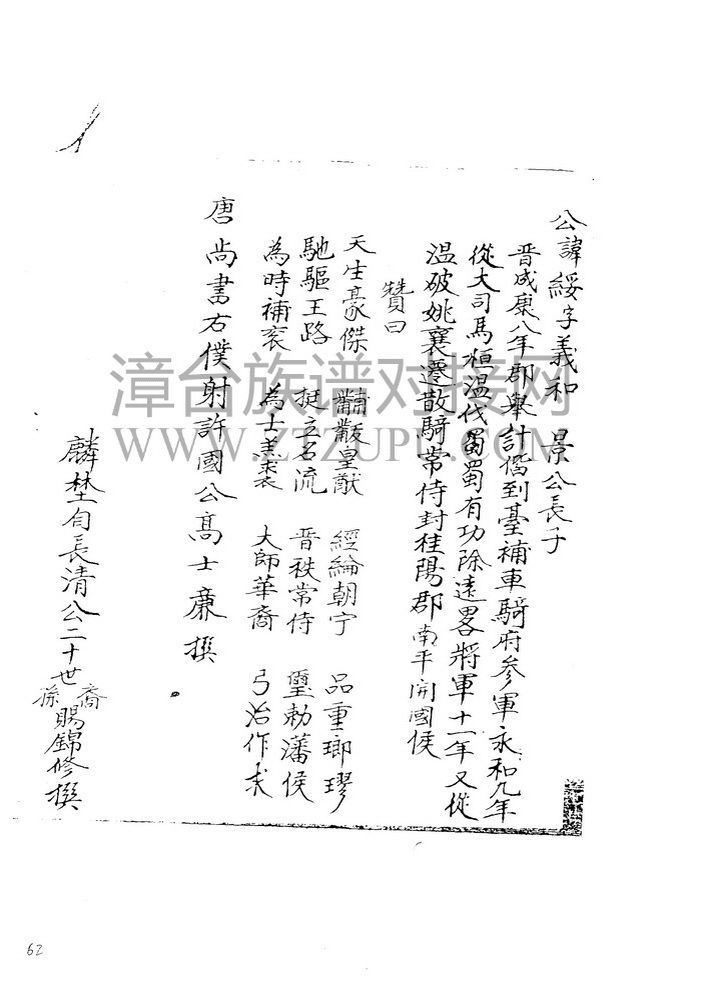 公諱綏字義和 景公長子
晋咸康八年郡舉計偕到臺補車騎府參軍永和九年
從大司馬桓温伐蜀蜀有功除遠畧將軍十一年又從
温破姚襄遷散騎常侍封桂陽郡南平開國侯
贊曰
天生豪傑 黼黻皇猷 經綸朝宁 品重瑯璆
馳驅王路 挺立名流 晋秩常侍 璽勅藩侯
為時補衮 為士羔裘 大師華裔 弓治作求
唐尚書右僕射許國公高士廉撰
麟埜旬長清公二十世裔孫賜錦修撰
漳台族谱对接网
WWW.ZTZUPU.COM
62